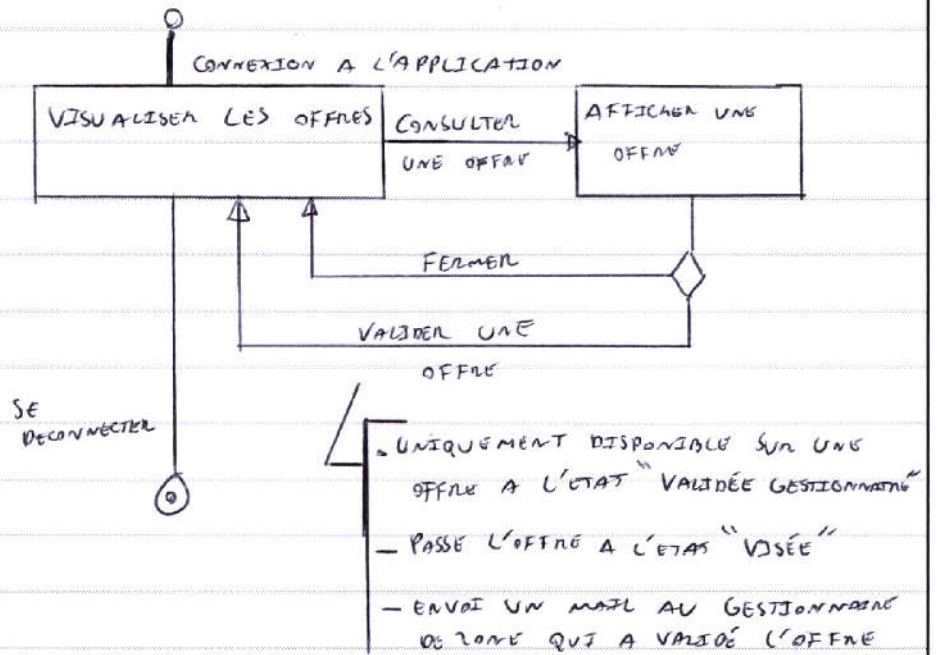 CONNEXION A L'APPLICATION
VISUALISER LES OFFRES
CONSULTER
UNE OFFRE
AFFICHER UNE
OFFRE
FERMER
VALIDER UNE
OFFRE
SE
DECONNECTER
. UNIQUEMENT DISPONIBLE SUR UNE
OFFRE A L'ETAT "VALIDÉE GESTIONNAIRE"
- PASSE L'OFFRE A L'ETAT "VISÉE"
- ENVOI UN MAIL AU GESTIONNAIRE
DE ZONE QUI A VALIDÉ L'OFFRE